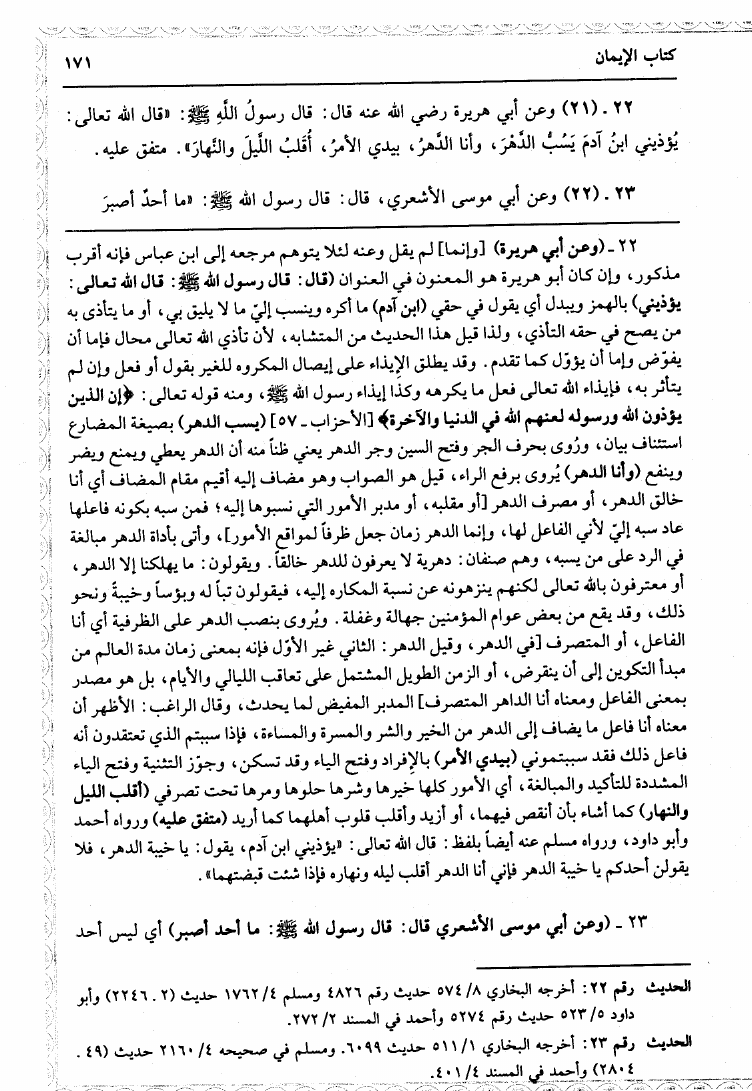 كتاب الإيمان
١٧١
٢٢ ـ (٢١) وعن أبي هريرة رضي الله عنه قال: قال رسولُ اللَّهِ ﷺ: «قال الله تعالى:
يُؤذيني ابنُ آدمَ يَسُبُّ الدَّهْرَ، وأنا الدَّهرُ، بيدي الأمرُ، أُقَلبُ اللَّيلَ والنَّهارَ». متفق عليه.
٢٣ ـ (٢٢) وعن أبي موسى الأشعري، قال: قال رسول الله ﷺ: «ما أحدٌ أصبرَ
٢٢ ـ (وعن أبي هريرة) [وإنما] لم يقل وعنه لئلا يتوهم مرجعه إلى ابن عباس فإنه أقرب
مذكور، وإن كان أبو هريرة هو المعنون في العنوان (قال: قال رسول الله ﷺ: قال الله تعالى:
يؤذيني) بالهمز ويبدل أي يقول في حقي (ابن آدم) ما أكره وينسب إليّ ما لا يليق بي، أو ما يتأذى به
من يصح في حقه التأذي، ولذا قيل هذا الحديث من المتشابه، لأن تأذي الله تعالى محال فإما أن
يفوّض وإما أن يؤوّل كما تقدم. وقد يطلق الإيذاء على إيصال المكروه للغير بقول أو فعل وإن لم
يتأثر به، فإيذاء الله تعالى فعل ما يكرهه وكذا إيذاء رسول الله ﷺ، ومنه قوله تعالى: ﴿إن الذين
يؤذون الله ورسوله لعنهم الله في الدنيا والآخرة﴾ [الأحزاب ـ ٥٧] (يسب الدهر) بصيغة المضارع
استئناف بيان، ورُوى بحرف الجر وفتح السين وجر الدهر يعني ظناً منه أن الدهر يعطي ويمنع ويضر
وينفع (وأنا الدهر) يُروى برفع الراء، قيل هو الصواب وهو مضاف إليه أقيم مقام المضاف أي أنا
خالق الدهر، أو مصرف الدهر [أو مقلبه، أو مدبر الأمور التي نسبوها إليه؛ فمن سبه بكونه فاعلها
عاد سبه إليّ لأني الفاعل لها، وإنما الدهر زمان جعل ظرفاً لمواقع الأمور]، وأتى بأداة الدهر مبالغة
في الرد على من يسبه، وهم صنفان: دهرية لا يعرفون للدهر خالقاً. ويقولون: ما يهلكنا إلا الدهر،
أو معترفون بالله تعالى لكنهم ينزهونه عن نسبة المكاره إليه، فيقولون تباً له وبؤساً وخيبةً ونحو
ذلك، وقد يقع من بعض عوام المؤمنين جهالة وغفلة. ويُروى بنصب الدهر على الظرفية أي أنا
الفاعل، أو المتصرف [في الدهر، وقيل الدهر: الثاني غير الأوّل فإنه بمعنى زمان مدة العالم من
مبدأ التكوين إلى أن ينقرض، أو الزمن الطويل المشتمل على تعاقب الليالي والأيام، بل هو مصدر
بمعنى الفاعل ومعناه أنا الداهر المتصرف] المدبر المفيض لما يحدث، وقال الراغب: الأظهر أن
معناه أنا فاعل ما يضاف إلى الدهر من الخير والشر والمسرة والمساءة، فإذا سببتم الذي تعتقدون أنه
فاعل ذلك فقد سببتموني (بيدي الأمر) بالإفراد وفتح الياء وقد تسكن، وجوّز التثنية وفتح الياء
المشددة للتأكيد والمبالغة، أي الأمور كلها خيرها وشرها حلوها ومرها تحت تصرفي (أقلب الليل
والنهار) كما أشاء بأن أنقص فيهما، أو أزيد وأقلب قلوب أهلهما كما أريد (متفق عليه) ورواه أحمد
وأبو داود، ورواه مسلم عنه أيضاً بلفظ: قال الله تعالى: «يؤذيني ابن آدم، يقول: يا خيبة الدهر، فلا
يقولن أحدكم يا خيبة الدهر فإني أنا الدهر أقلب ليله ونهاره فإذا شئت قبضتهما».
٢٣ ـ (وعن أبي موسى الأشعري قال: قال رسول الله ﷺ: ما أحد أصبر) أي ليس أحد
الحديث رقم ٢٢: أخرجه البخاري ٨/ ٥٧٤ حديث رقم ٤٨٢٦ ومسلم ٤/ ١٧٦٢ حديث (٢ .٢٢٤٦) وأبو
داود ٥/ ٥٢٣ حديث رقم ٥٢٧٤ وأحمد في المسند ٢/ ٢٧٢.
الحديث رقم ٢٣: أخرجه البخاري ١/ ٥١١ حديث ٦٠٩٩. ومسلم في صحيحه ٤/ ٢١٦٠ حديث (٤٩ .
٢٨٠٤) وأحمد في المسند ٤/ ٤٠١.